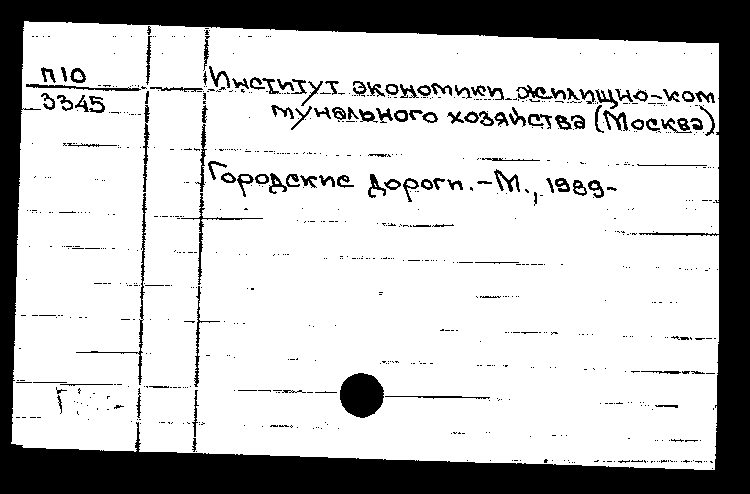 П10
3345
Институт экономики жилищно-ком
мунального хозяйства (Москва).
Городские дороги. - М., 1989-